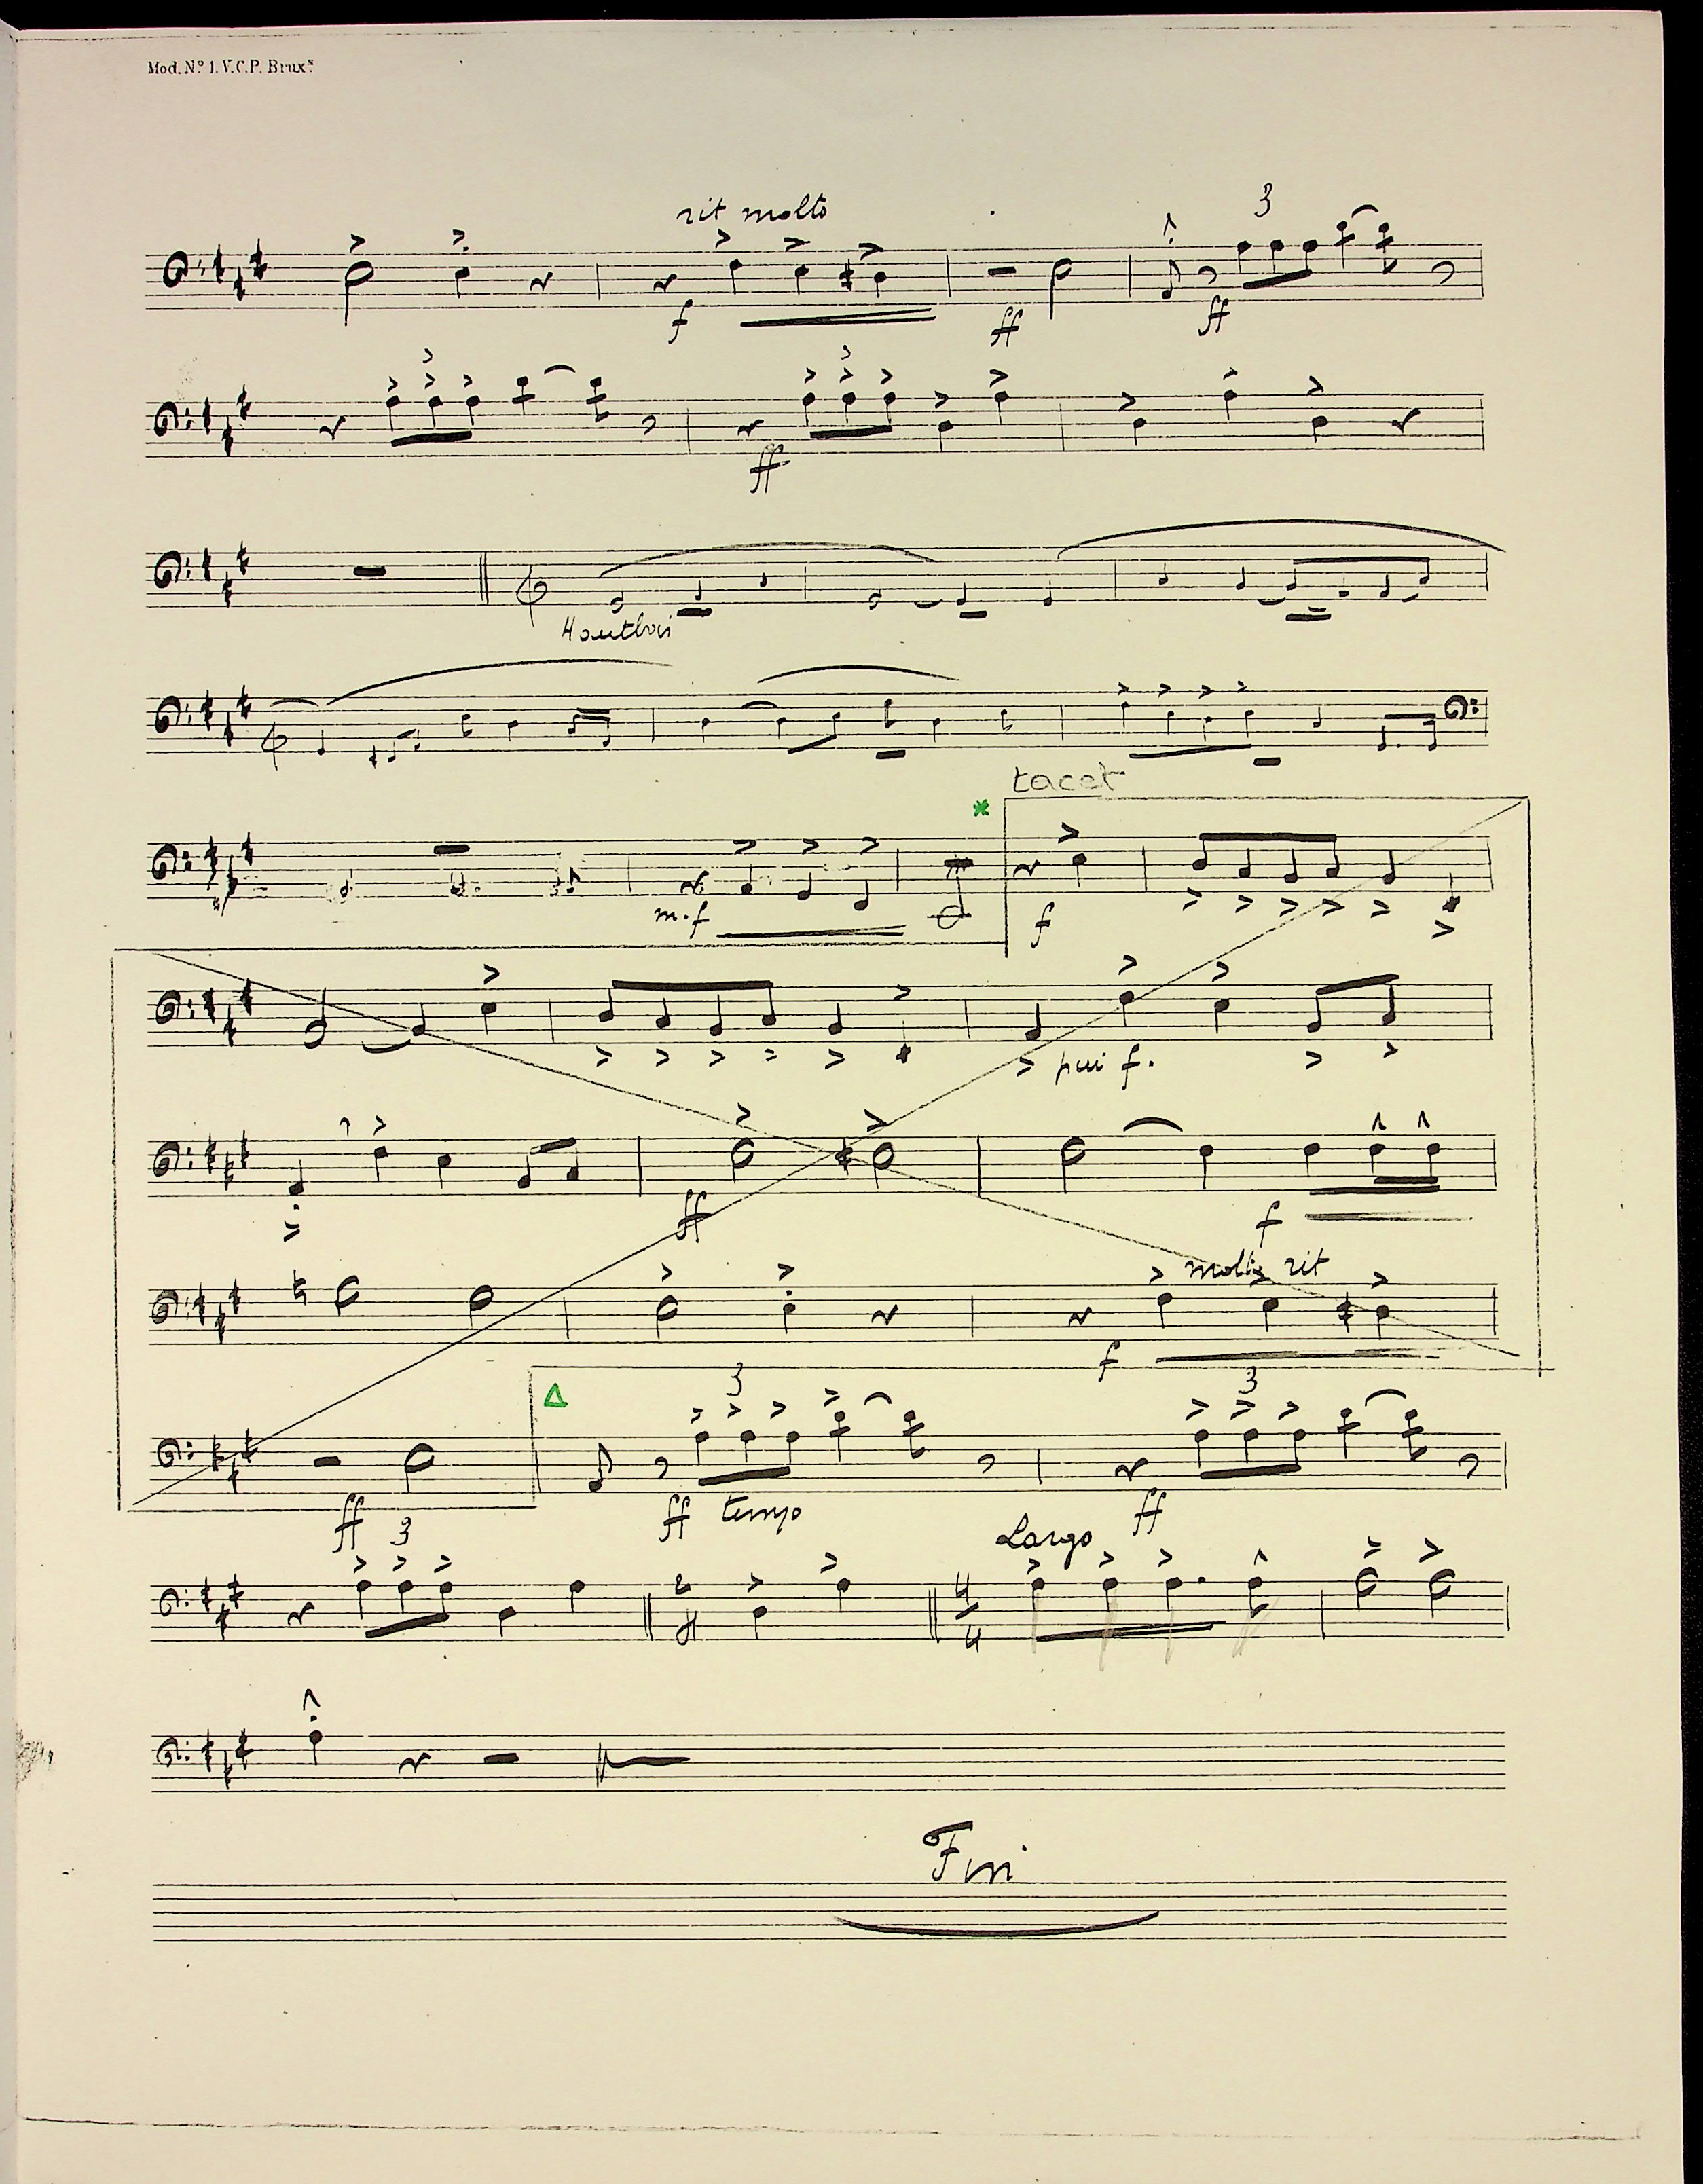 Mod. Nº 1. V.C.P. Bruxˢ
rit molto
3
f
ff
ff
3
3
ff
Hautbois
tacet
m.f
f
piu f.
ff
f
molto rit
f
3
3
ff
ff tempo
ff
3
Largo
2
4
4
Fin